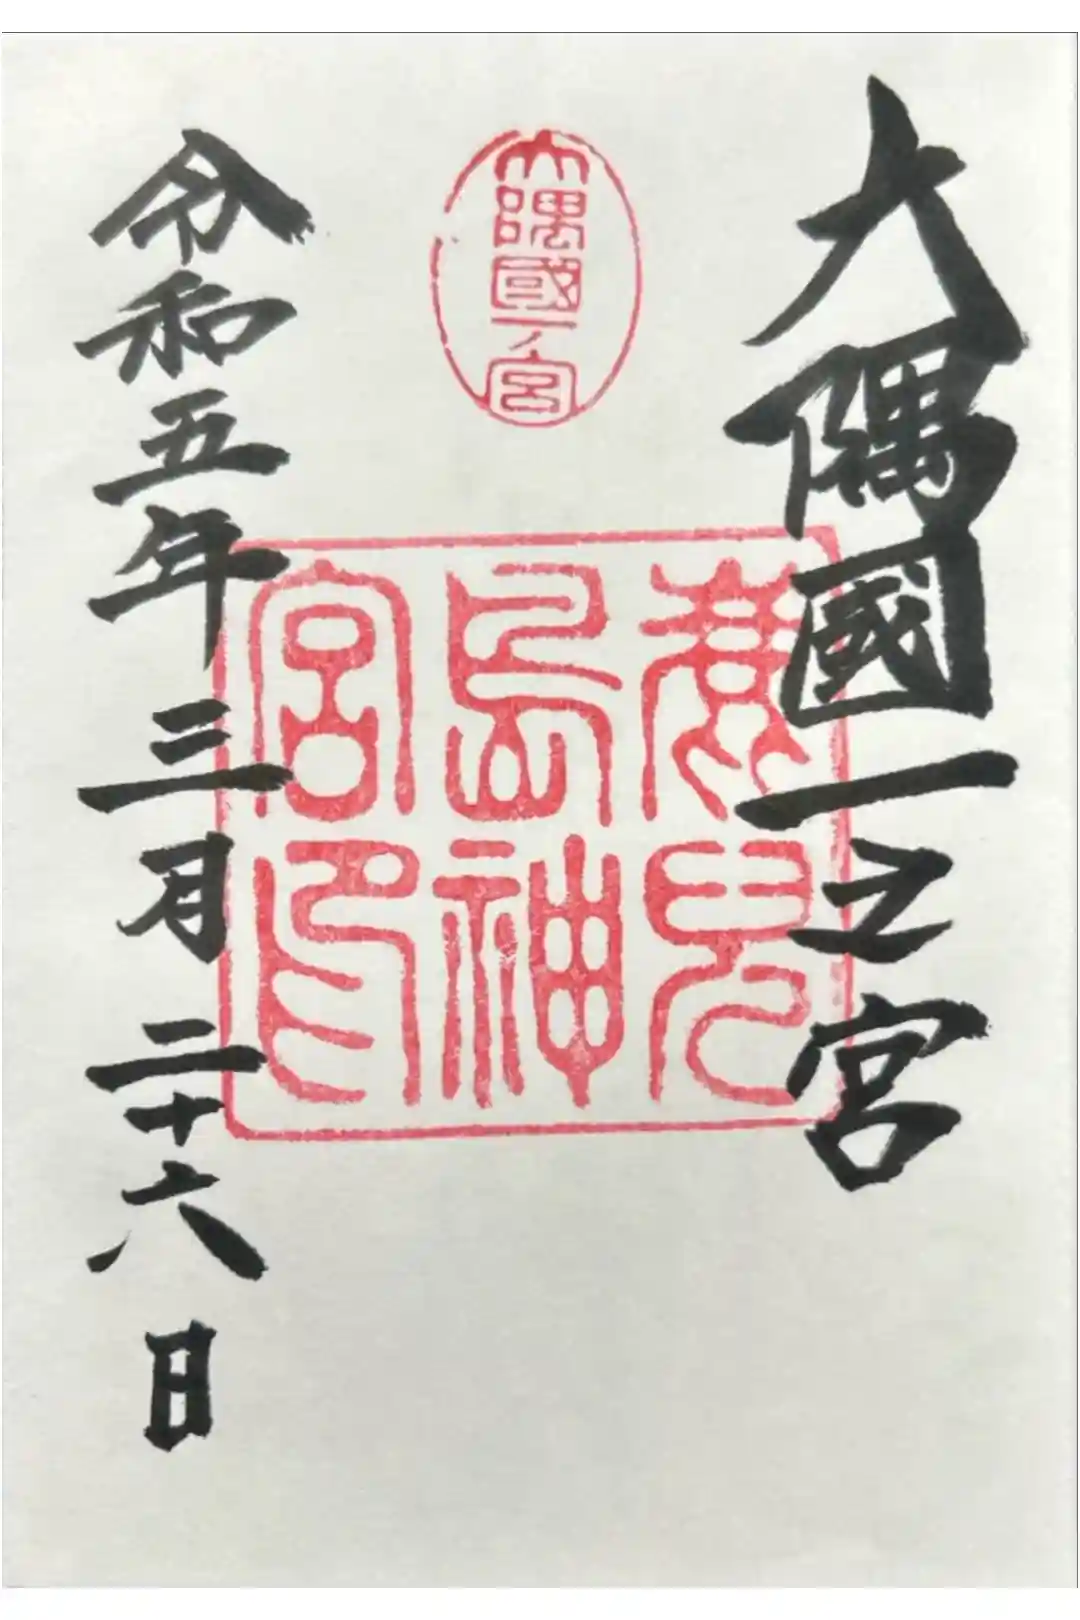 大隅國一之宮
大隅國一ノ宮
鹿兒
島神
宮印
令和五年三月二十六日